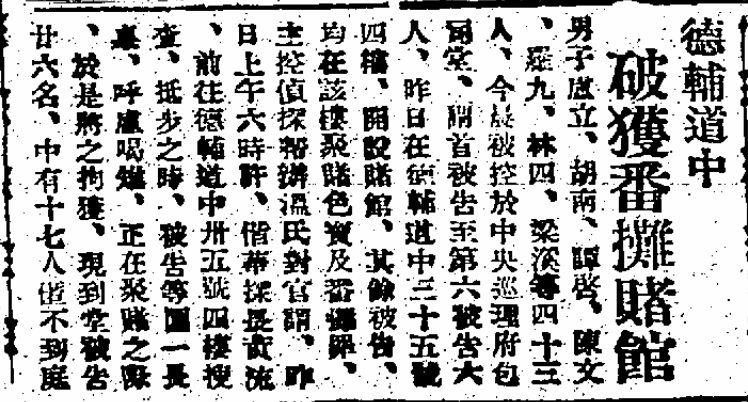 德輔道中
破獲番攤賭館
男子盧立、胡南、譚啓、陳文
、羅九、林四、梁溪等四十三
人、今晨被控於中央巡理府包
爾堂、謂首被告至第六被告六
人、昨日在德輔道中三十五號
四樓、開設賭館、其餘被告、
均在該樓聚賭色寶及番攤牌、
主控偵探幫辦溫氏對官謂、昨
日上午六時許、偕華探長黃流
、前往德輔道中卅五號四樓搜
查、抵步之時、被告等圍一長
桌、呼盧喝雉、正在聚賭之際
、於是將之拘獲、現到堂被告
廿六名、中有十七人匿不到庭